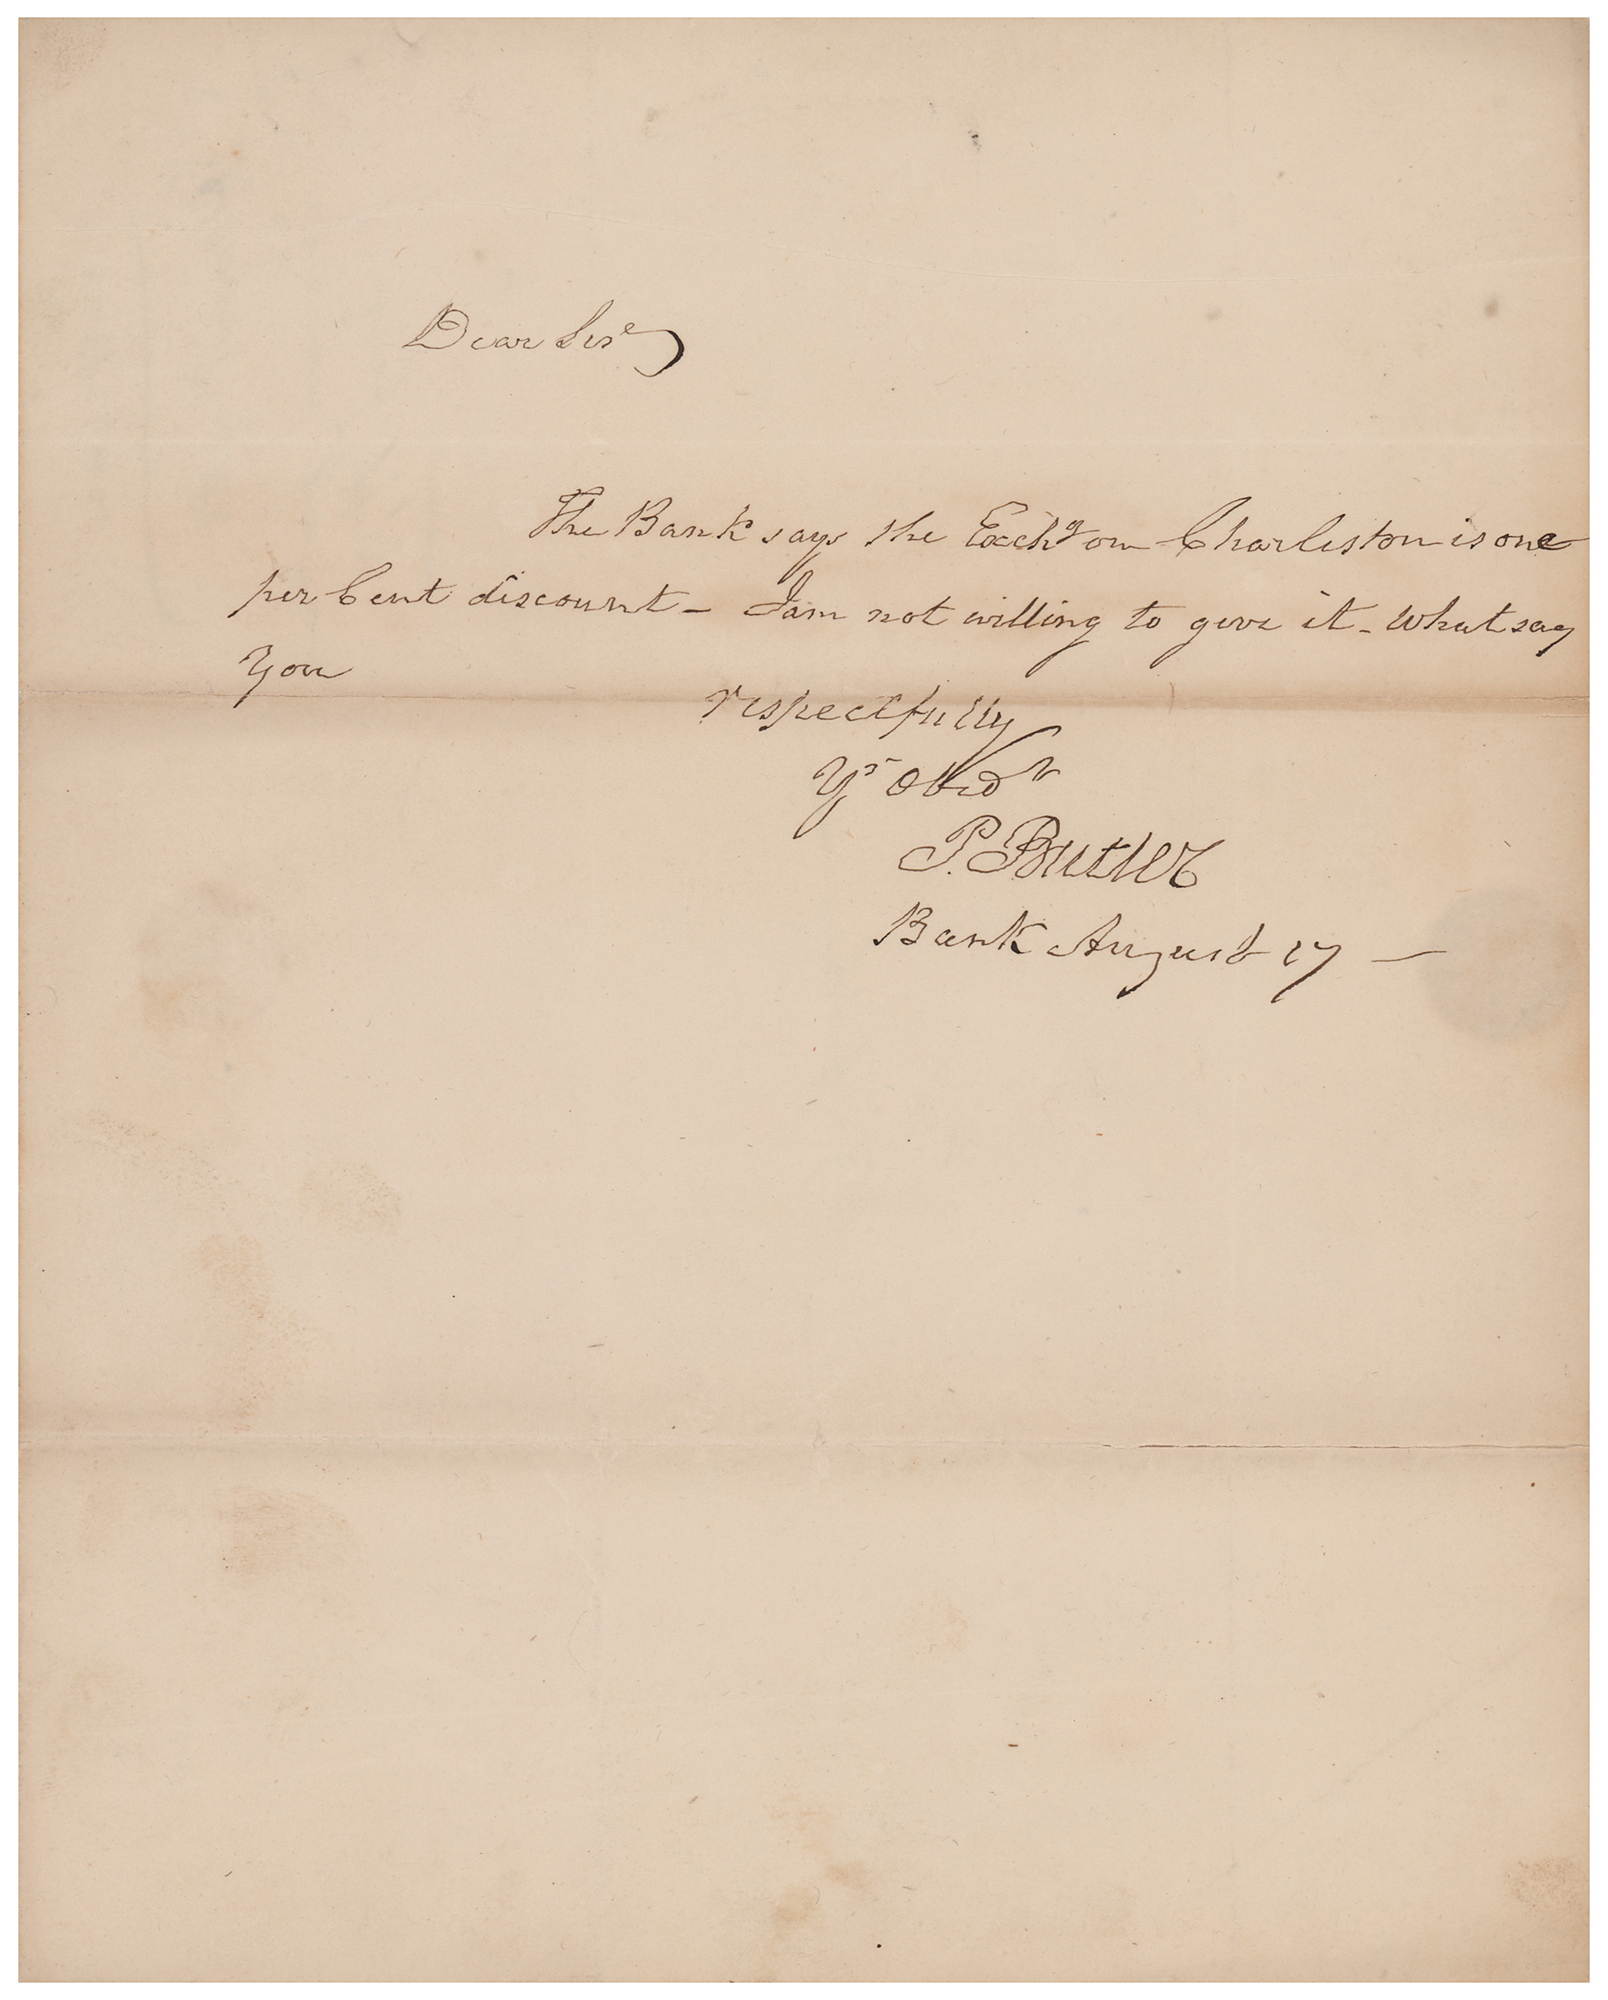 Dear Sir
The Bank says the Exchg on Charleston is one
per Cent discount – I am not willing to give it – What say
You
respectfully
Yr Obed
P. Butler
Bank August 17 –